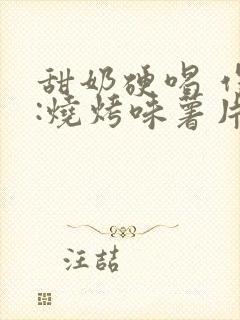 甜奶硬唱
:燒烤味薯片
汪喆